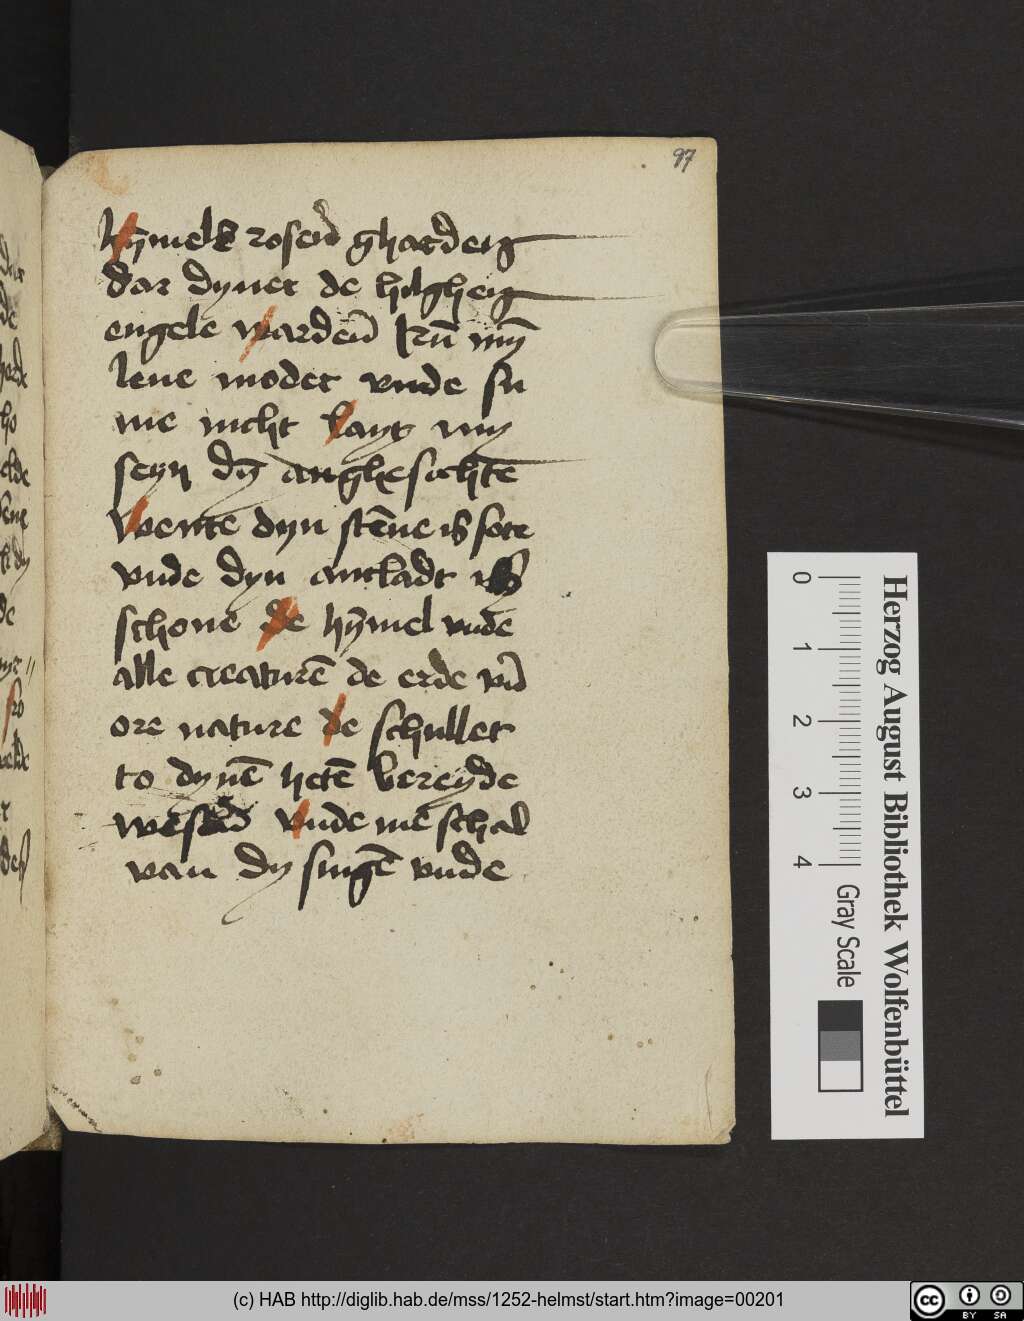 97
hȳmels rosen̄ gharden
dar dynet de hilghen
engele warden̄ kū mȳ
leue moder vnde su
me nicht layt my
seyn dȳ anghesichte
wente dyn stēne is sote
vnde dyn antladt is
schone de hȳmel vnde
alle creaturē de erde vn̄
ore nature de schullet
to dynē bereyde
wesen̄ vnde mē schal
van dy singē vnde
Herzog August Bibliothek Wolfenbüttel
0 1 2 3 4
Gray Scale
(c) HAB http://diglib.hab.de/mss/1252-helmst/start.htm?image=00201
cc BY SA